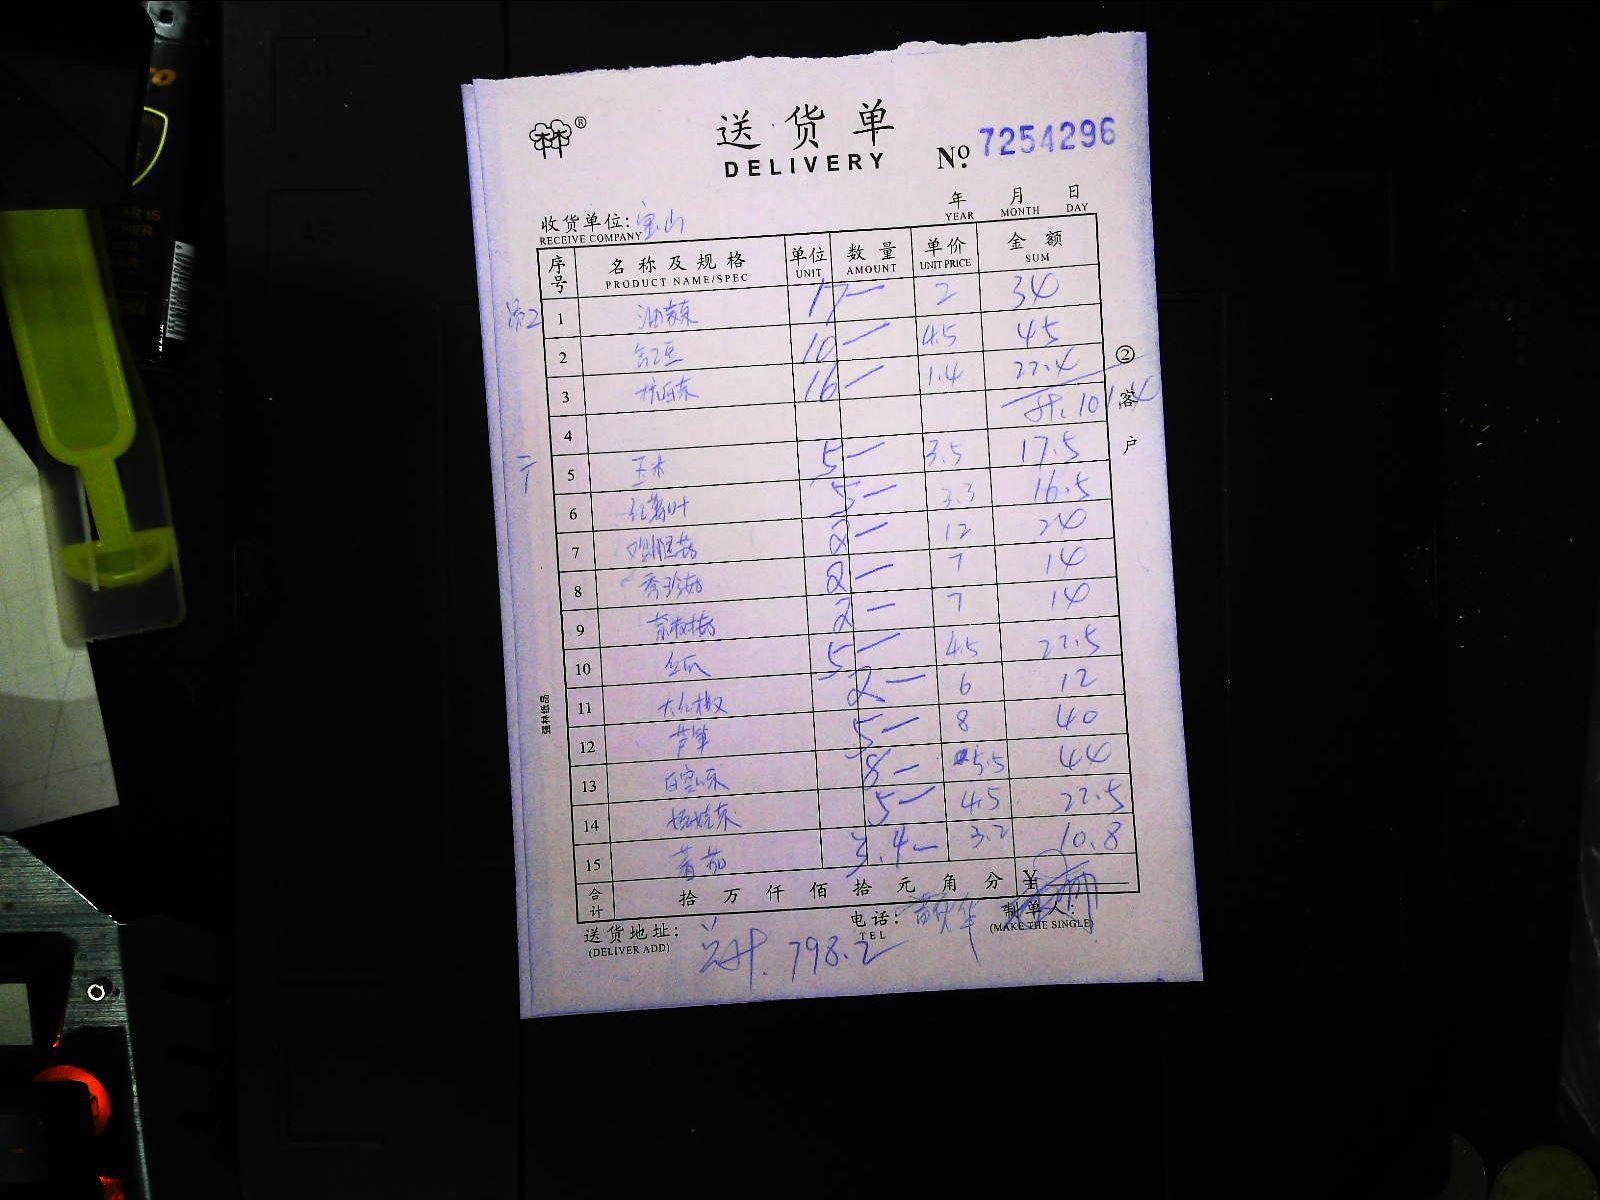 送货单
DELIVERY
No. 7254296
年 月 日
YEAR MONTH DAY
收货单位: 宝山
RECEIVE COMPANY
序号 名称及规格 单位 数量 单价 金额
PRODUCT NAME/SPEC UNIT AMOUNT UNIT PRICE SUM
1 油菜 17— 2 34
2 缸豆 10— 4.5 45
3 杭白菜 16— 1.4 22.4
4 计. 101.4
5 玉米 5— 3.5 17.5
6 红薯叶 5— 3.3 16.5
7 2— 12 24
8 秀珍菇 2— 7 14
9 茶树菇 2— 7 14
10 丝瓜 5— 4.5 22.5
11 大红椒 2— 6 12
12 芦笋 5— 8 40
13 白空心菜 8— 5.5 44
14 5— 4.5 22.5
15 蕃茄 3.4— 3.2 10.8
合计 拾 万 仟 佰 拾 元 角 分 ¥
送货地址: 电话: 制单人:
(DELIVER ADD) TEL (MAKE THE SINGLE)
总计. 798.2
② 客户
强林纸品
A4